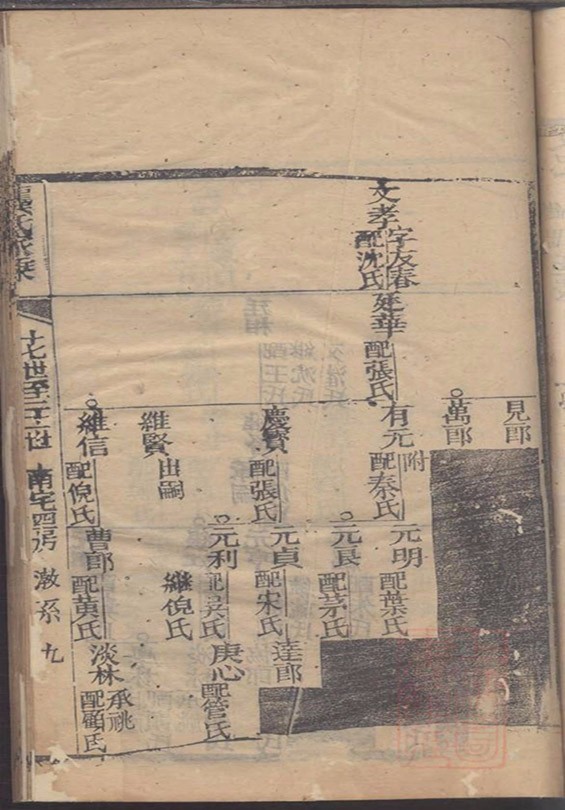 文孝
字友春
配沈氏
廷華
配張氏
見郎
萬郎
有元
附
配秦氏
慶寶
配張氏
維賢
出嗣
維信
配倪氏
元明
配葉氏
元良
配茅氏
元貞
配宋氏
元利
配吳氏
繼倪氏
曹郎
配黄氏
達郎
庚心
配管氏
淡林
承祧
配顧氏
十七世至二十一世
南宅四房
澉系
九